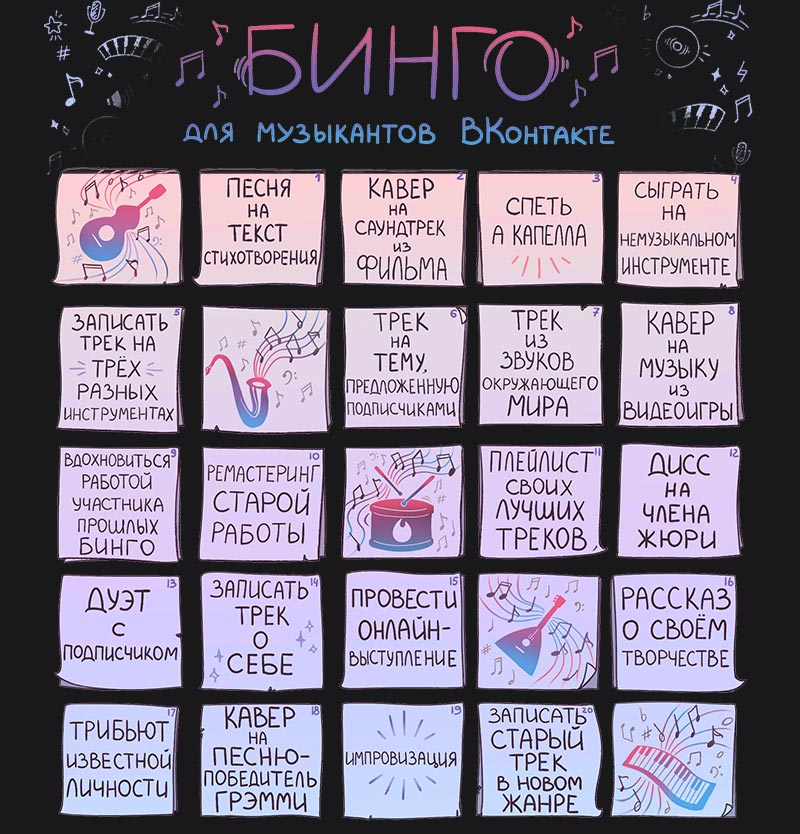 БИНГО
ДЛЯ МУЗЫКАНТОВ ВКОНТАКТЕ
1
ПЕСНЯ
НА
ТЕКСТ
СТИХОТВОРЕНИЯ
2
КАВЕР
НА
САУНДТРЕК
ИЗ
ФИЛЬМА
3
СПЕТЬ
А КАПЕЛЛА
4
СЫГРАТЬ
НА
НЕМУЗЫКАЛЬНОМ
ИНСТРУМЕНТЕ
5
ЗАПИСАТЬ
ТРЕК НА
ТРЁХ
РАЗНЫХ
ИНСТРУМЕНТАХ
6
ТРЕК
НА
ТЕМУ,
ПРЕДЛОЖЕННУЮ
ПОДПИСЧИКАМИ
7
ТРЕК
ИЗ
ЗВУКОВ
ОКРУЖАЮЩЕГО
МИРА
8
КАВЕР
НА
МУЗЫКУ
ИЗ
ВИДЕОИГРЫ
9
ВДОХНОВИТЬСЯ
РАБОТОЙ
УЧАСТНИКА
ПРОШЛЫХ
БИНГО
10
РЕМАСТЕРИНГ
СТАРОЙ
РАБОТЫ
11
ПЛЕЙЛИСТ
СВОИХ
ЛУЧШИХ
ТРЕКОВ
12
ДИСС
НА
ЧЛЕНА
ЖЮРИ
13
ДУЭТ
С
ПОДПИСЧИКОМ
14
ЗАПИСАТЬ
ТРЕК
О
СЕБЕ
15
ПРОВЕСТИ
ОНЛАЙН-
ВЫСТУПЛЕНИЕ
16
РАССКАЗ
О СВОЁМ
ТВОРЧЕСТВЕ
17
ТРИБЬЮТ
ИЗВЕСТНОЙ
ЛИЧНОСТИ
18
КАВЕР
НА
ПЕСНЮ-
ПОБЕДИТЕЛЬ
ГРЭММИ
19
ИМПРОВИЗАЦИЯ
20
ЗАПИСАТЬ
СТАРЫЙ
ТРЕК
В НОВОМ
ЖАНРЕ